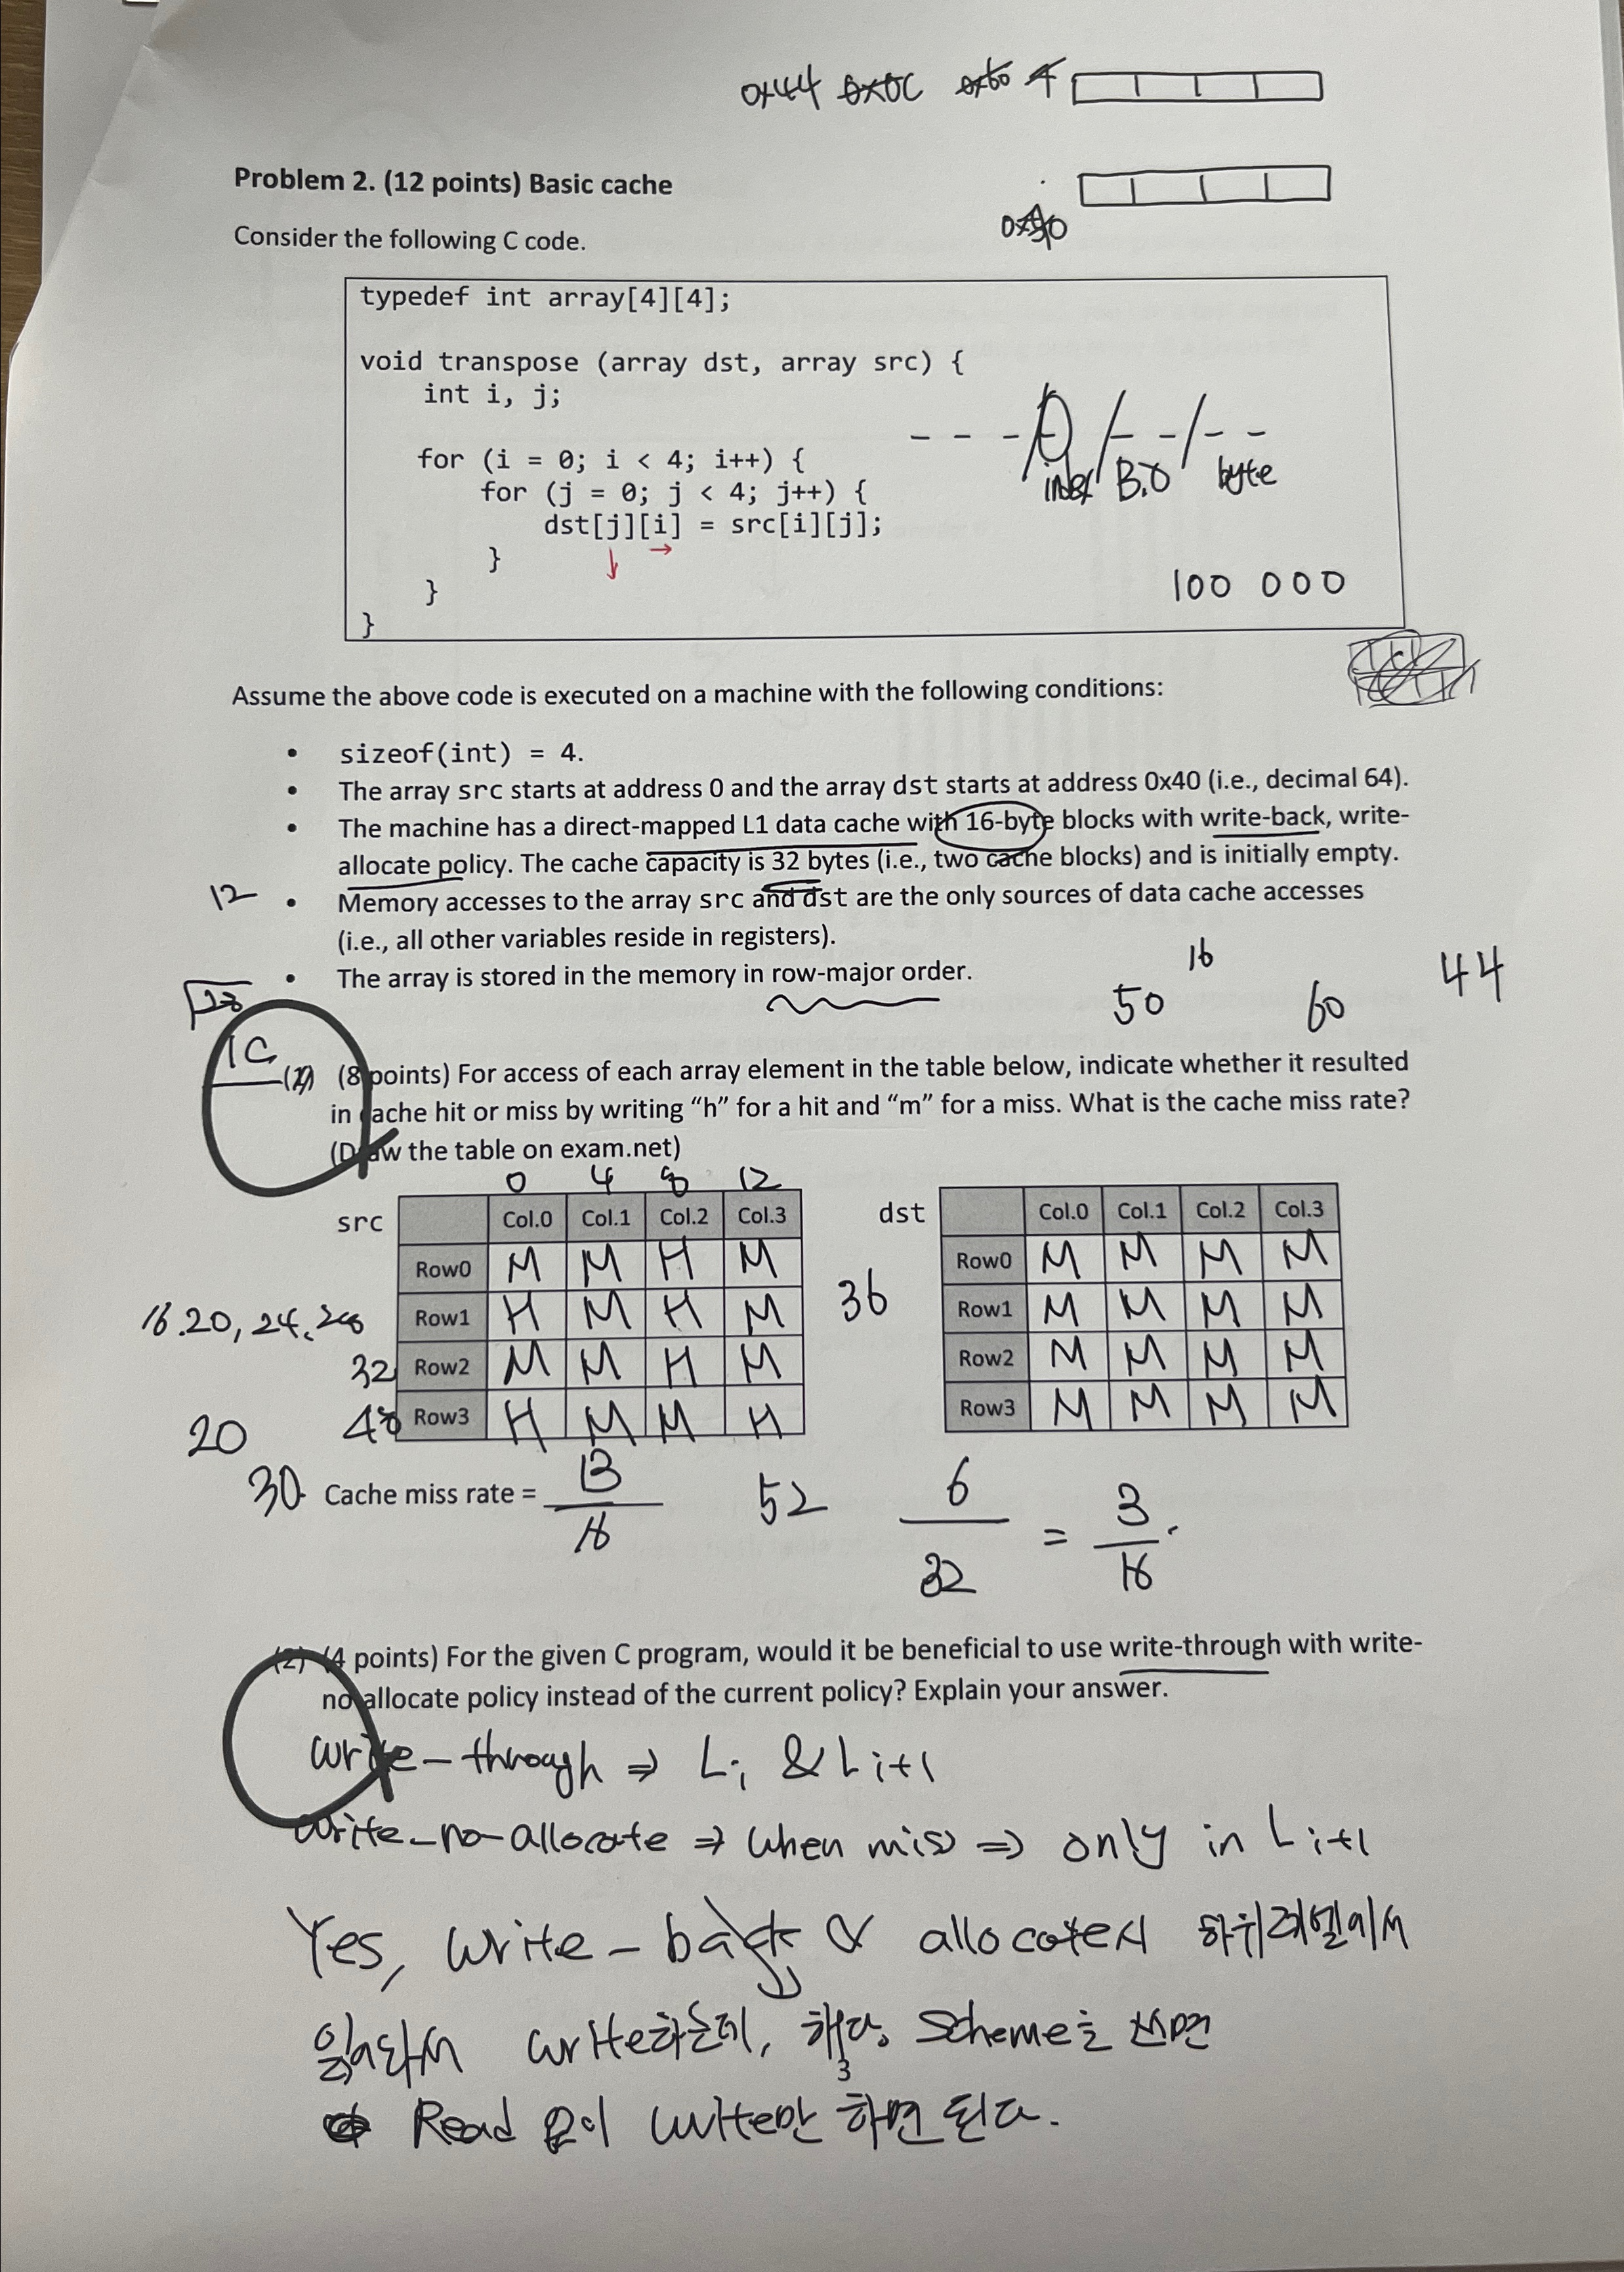 0x44 0x0C 0x60 4
Problem 2. (12 points) Basic cache
Consider the following C code.
typedef int array[4][4];
void transpose (array dst, array src) {
int i, j;
for (i = 0; i < 4; i++) {
for (j = 0; j < 4; j++) {
dst[j][i] = src[i][j];
}
}
}
index B.O byte
100 000
Assume the above code is executed on a machine with the following conditions:
• sizeof(int) = 4.
• The array src starts at address 0 and the array dst starts at address 0x40 (i.e., decimal 64).
• The machine has a direct-mapped L1 data cache with 16-byte blocks with write-back, write-
allocate policy. The cache capacity is 32 bytes (i.e., two cache blocks) and is initially empty.
12
• Memory accesses to the array src and dst are the only sources of data cache accesses
(i.e., all other variables reside in registers).
• The array is stored in the memory in row-major order.
16
50 60 44
1C
(1) (8 points) For access of each array element in the table below, indicate whether it resulted
in cache hit or miss by writing “h” for a hit and “m” for a miss. What is the cache miss rate?
(Draw the table on exam.net)
0 4 8 12
src Col.0 Col.1 Col.2 Col.3
Row0 M M H M
16.20, 24, 28 Row1 H M H M
32 Row2 M M H M
48 Row3 H M M H
36
dst Col.0 Col.1 Col.2 Col.3
Row0 M M M M
Row1 M M M M
Row2 M M M M
Row3 M M M M
20
30 Cache miss rate = 13
16
52
6
32
= 3
16
(2) (4 points) For the given C program, would it be beneficial to use write-through with write-
no allocate policy instead of the current policy? Explain your answer.
write-through ⇒ Li & Li+1
write-no-allocate ⇒ when miss ⇒ only in Li+1
Yes, write-back & allocate시 하위레벨에서
읽어와서 write하는데, 해당 scheme을 쓰면
Read 없이 write만 하면 된다.